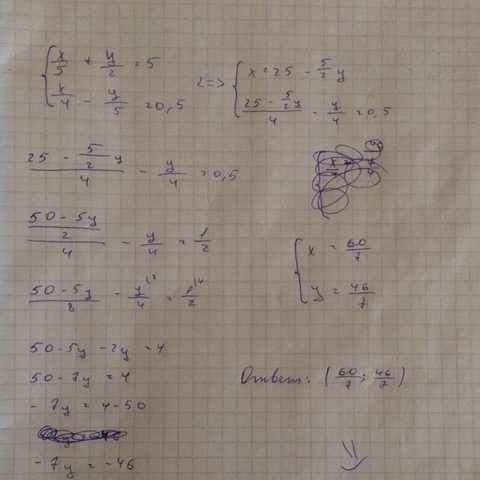 { x/5 + y/2 = 5
x/4 - y/5 = 0,5
<=> { x = 25 - 5/2 y
(25 - 5/2 y)/4 - y/4 = 0,5
(25 - 5/2 y)/4 - y/4 = 0,5
((50 - 5y)/2)/4 - y/4 = 1/2
(50 - 5y)/8 - y/4 ^2 = 1/2 ^4
50 - 5y - 2y = 4
50 - 7y = 4
- 7y = 4 - 50
- 7y = -46
{ x = 60/7
y = 46/7
Ответ: (60/7; 46/7)